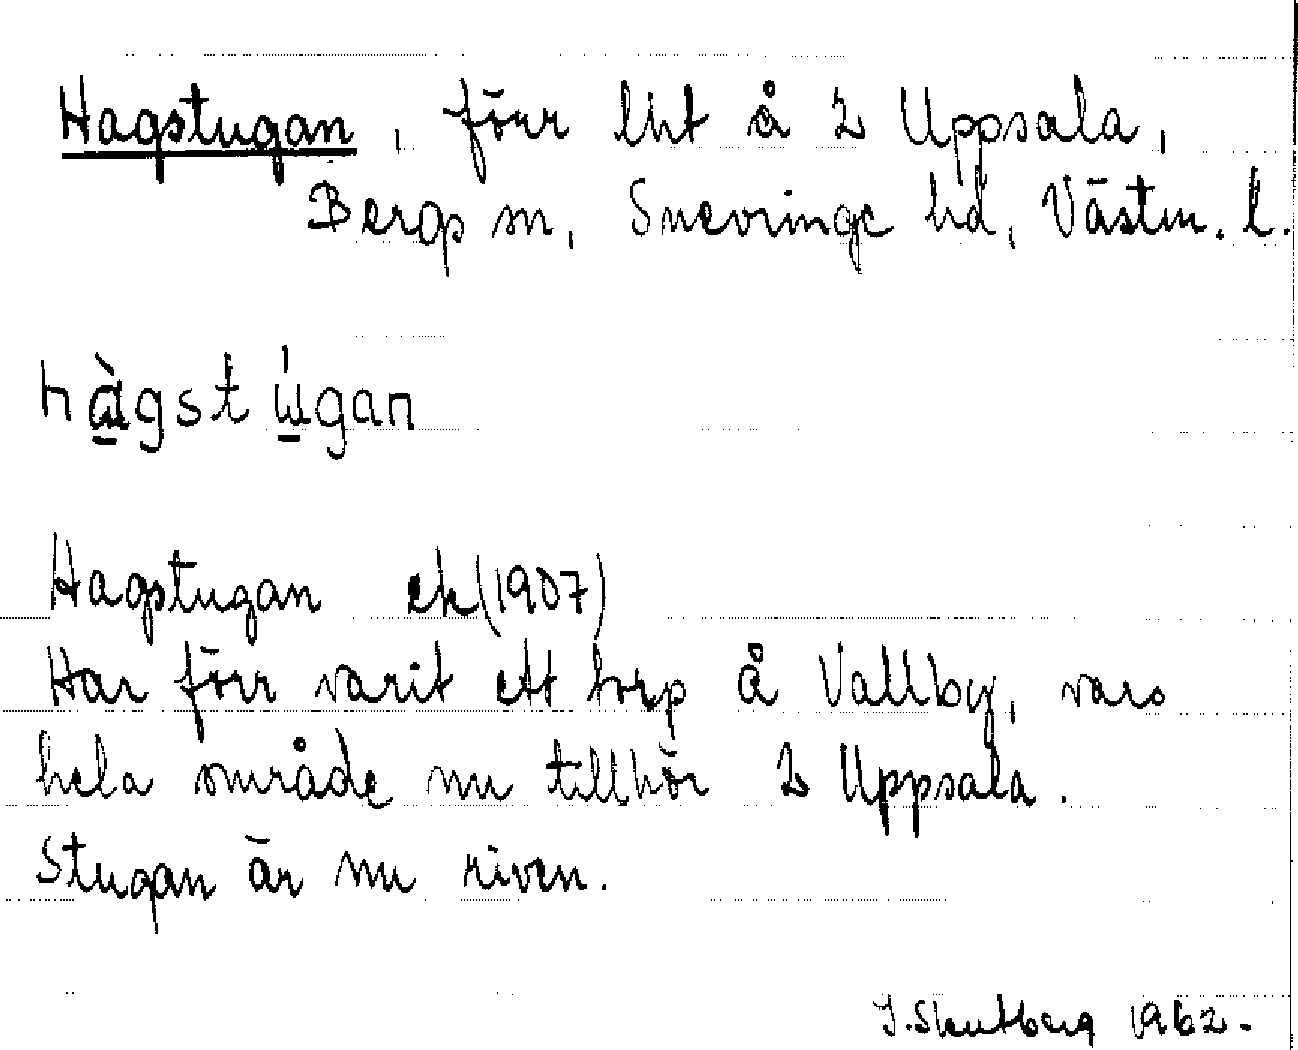 Hagstugan, förr lht å 2 Uppsala,
Bergs sn, Snevringe hd, Västm. l.
hàgstúgan
Hagstugan ek (1907)
Har förr varit ett torp å Vallby, vars
hela område nu tillhör 2 Uppsala.
Stugan är nu riven.
1962.